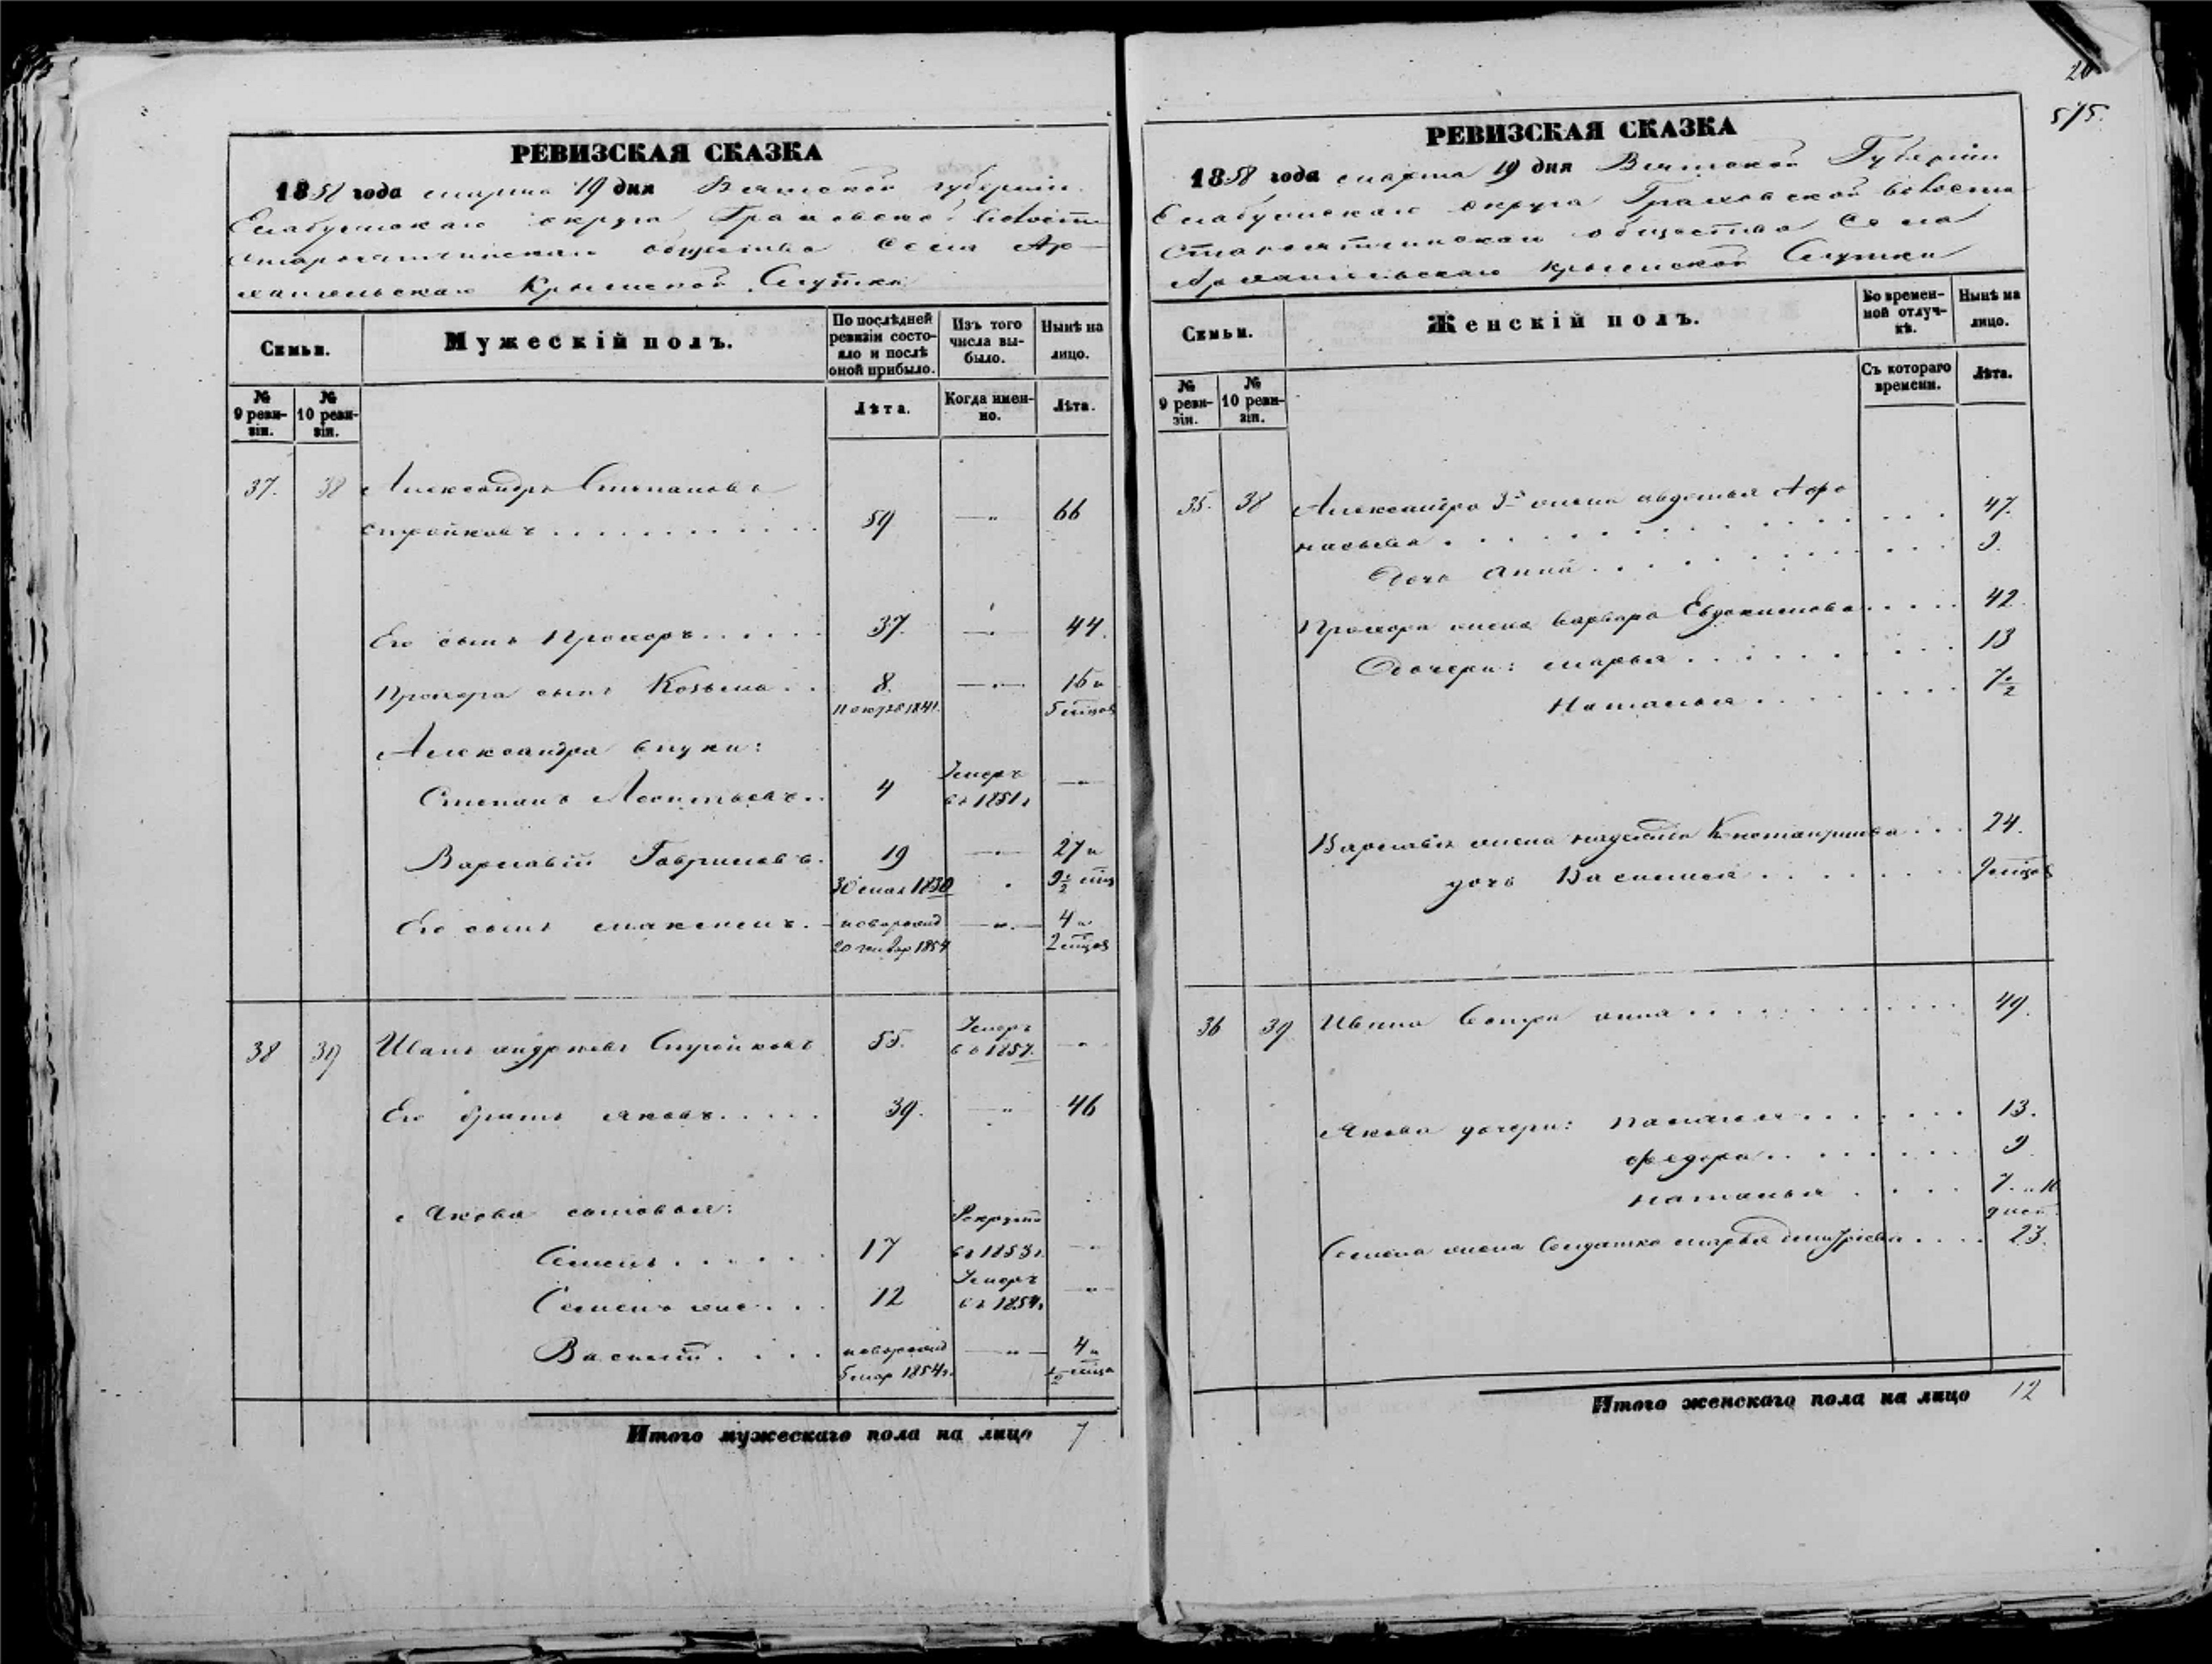 20
575.
РЕВИЗСКАЯ СКАЗКА
1858 года марта 19 дня Вятской губернии
Елабужскаго округа Граховской волости
Староятчинскаго общества села Ар-
хангельскаго Крымской Слудки
Семьи.
Мужескій полъ.
По послѣдней ревизіи состояло и послѣ оной прибыло.
Изъ того числа выбыло.
Нынѣ на лицо.
№ 9 ревизіи.
№ 10 ревизіи.
Лѣта.
Когда именно.
Лѣта.
37. 38 Александръ Степановъ
Стройковъ 59 — " 66
Его сынъ Прохоръ 37. — 44.
Прохора сынъ Козьма 8. — 16 и
11 октяб 1841. 5 мцов
Александра внуки:
Степанъ Леонтьевъ 4 Умеръ въ 1851 г —
Варлавій Гавриловъ 19 — 27 и
30 мая 1830 9½ мцъ
Его сынъ Максимъ новорожд — " — 4 и
20 генвар 1854 2 мцов
38 39 Иванъ Андреевъ Стройковъ 55. Умеръ въ 1857. — " —
Его братъ Яковъ 39. — " 46
Якова сыновья:
Семенъ 17 Рекрутъ въ 1853 г. — " —
Семенъ же 12 Умеръ въ 1854 г. — " —
Василій новорожд — " — 4 и
5 мар 1854 г. ½ мца
Итого мужескаго пола на лицо 7
РЕВИЗСКАЯ СКАЗКА
1858 года марта 19 дня Вятской Губерніи
Елабужскаго округа Граховской волости
Староятчинскаго общества Села
Архангельскаго Крымской Слудки
Семьи.
Женскій полъ.
Во временной отлучкѣ.
Нынѣ на лицо.
№ 9 ревизіи.
№ 10 ревизіи.
Съ котораго времени.
Лѣта.
35. 38 Александра 3я жена Авдотья Афо
насьева 47.
Дочь Анна 9.
Прохора жена Варвара Евдокимова 42.
Дочери: Марья 13
Наталья 7½
Варлавія жена Надежда Кнстантинова 24.
дочь Василиса 9 мцов
36 39 Ивана Сестра Анна 49.
Якова дочери: 13.
Федора 9
Наталья 7. и 10
Семена жена Солдатка Марья Дмитріева 23.
Итого женскаго пола на лицо 12